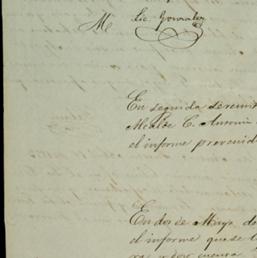 M Lic. Gonzalez
En seguida se remit
Alcalde C. Antonio
el informe prevenid
En dos de Mayo do
el informe que se